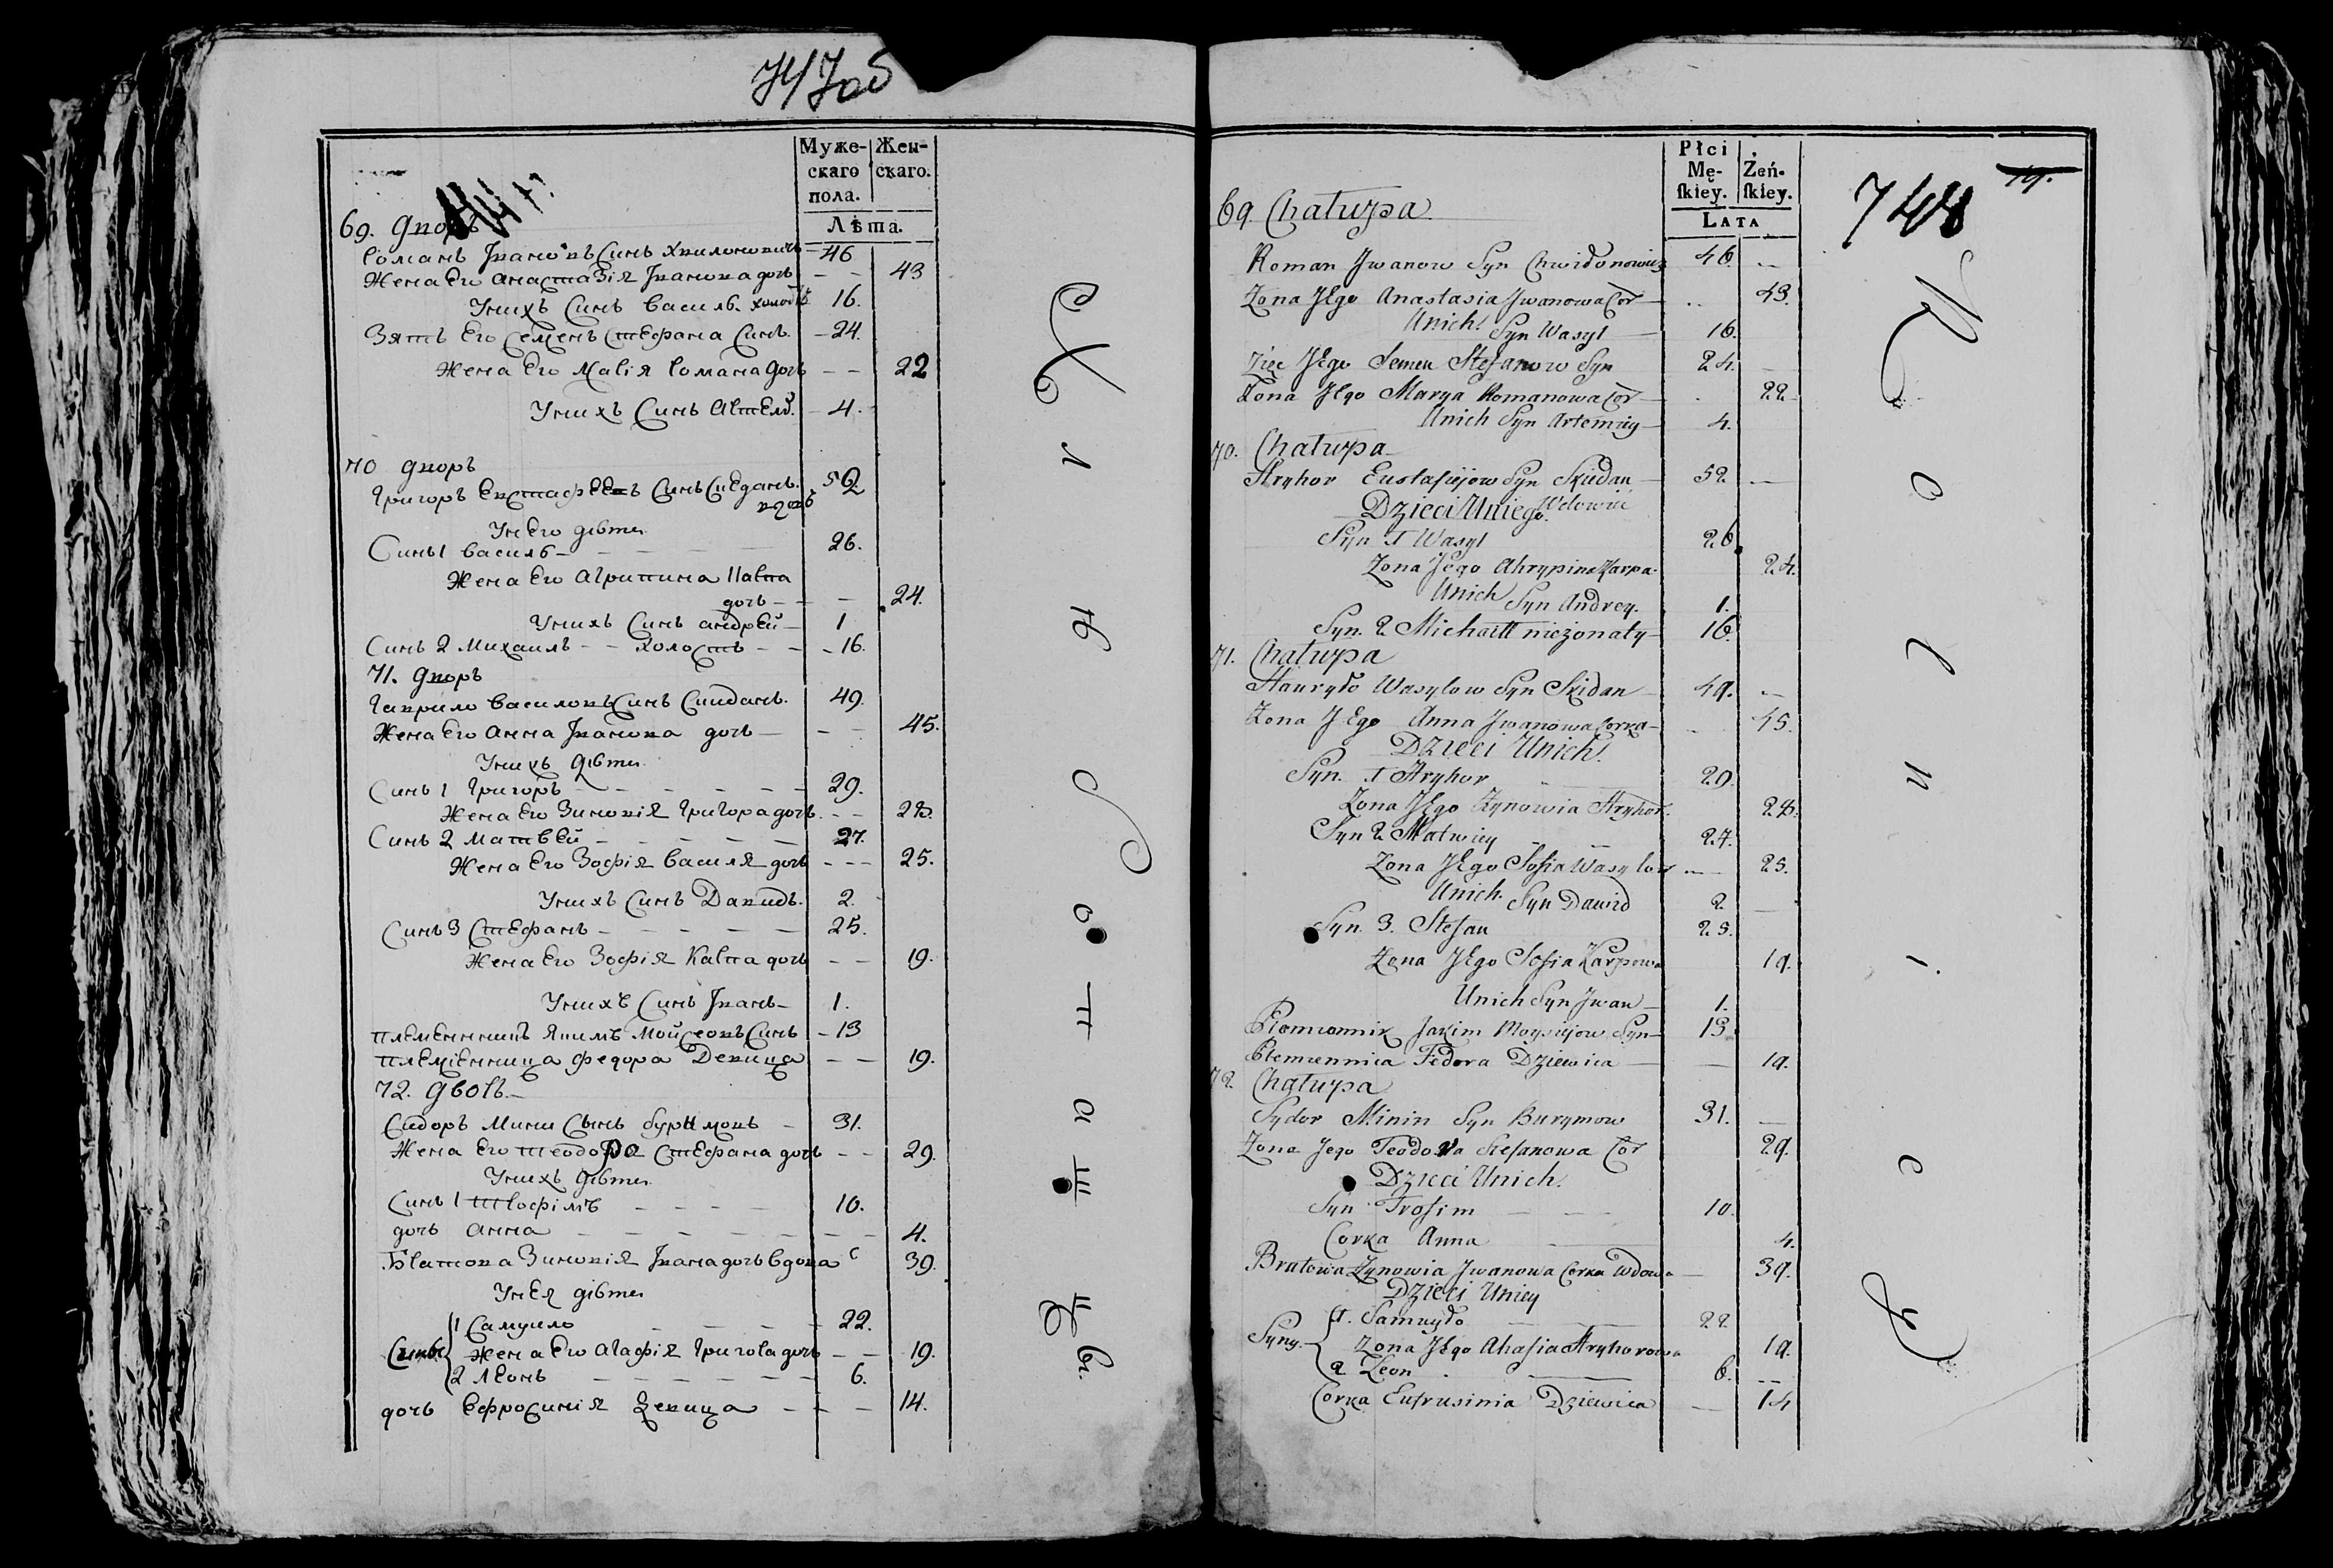 747об
Муже-скаго пола. Жен-скаго.
Лѣта.
69. дворъ
Романъ Ивановъ Синъ Хвилоновичъ 46
Жена Его Анастазія Иванова дочъ — — 43
Унихъ Синъ Василь. холостъ 16.
Зять Его Семенъ Стефана Синъ. — 24.
Жена Его Марія Романа дочъ — — 22
Унихъ Синъ Артемій. — 4.
70 дворъ
Григоръ Евстафеевъ Синъ Скеданъ. 52
вдовъ
УнЕго дѣти
Синъ 1 Василь — 26.
Жена Его Агрипина Карпа
дочъ — — 24.
Унихъ Синъ Андрей — 1
Синъ 2 Михаилъ — — Холостъ — — 16.
71. дворъ
Гаврило Василовъ Синъ Скиданъ. 49.
Жена Его Анна Иванова дочъ — — — 45.
Унихъ дѣти
Синъ 1 Григоръ — 29.
Жена Его Зиновія Григора дочъ. — — 28.
Синъ 2 Матвѣй — 27.
Жена Его Зофія Василя дочъ — — — 25.
Унихъ Синъ Давидъ. 2.
Синъ 3 Стефанъ — 25.
Жена Его Зофія Карпа дочъ — — 19.
Унихъ Синъ Иванъ — 1.
племенникъ Якимъ Мойсеовъ Синъ — 13
племіенница Федора Девица — — 19.
72. дворъ. —
Сидоръ Мини Сынъ Буримовъ — 31.
Жена Его Теодора Стефана дочъ — — 29.
Унихъ дѣти
Синъ 1 Трофімъ — 10.
дочъ Анна — 4.
Братова Зиновія Ивана дочъ вдова 39.
УнЕя дѣти
1 Самуило — 22.
Сины Жена Его Агафія Григора дочъ — — 19.
2 Леонъ — 6.
дочъ Ефросинія Девица — — — 14.
Płci Mę-ſkiey. Żeń-ſkiey.
LATA
748
19.
69. Chałupa
Roman Jwanow Syn Chwidonowicz 46. —
Zona JEgo Anastasia Jwanowa Cor — 43.
Unich Syn Wasyl — 16.
Zięc JEgo Semen Stefanow Syn 24. —
Zona JEgo Marya Romanowa Cor — 22
Unich Syn Artemiy — 4.
70. Chałupa
Hryhor Eustafiejow Syn Skiedan — 52 —
Dzieci Uniego. Wdowiec
Syn 1 Wasyl 26.
Zona JEgo Ahrypina Karpa. 24.
Unich Syn Andrey. 1.
Syn. 2 Michałł nieżonaty — 16.
71. Chałupa
Hauryło Wasylow Syn Skidan — 49. —
Zona JEgo Anna Jwanowa Corka — 45.
Dzieci Unich.
Syn. 1 Hryhor 29.
Zona JEgo Zynowia Hryhor. 28.
Syn 2 Matwiey 27.
Zona JEgo Sofia Wasylow — 25.
Unich. Syn Dawid 2. —
Syn. 3. Stefan 25.
Zona JEgo Sofia Karpowa 19.
Unich Syn Jwan — 1.
Plemiennik Jakim Moysiejow Syn — 13.
Plemiennica Fedora Dziewica — — 19.
72. Chałupa
Sydor Minin Syn Burymow 31. —
Zona Jego Teodora Stefanowa Cor 29.
Dzieci Unich.
Syn Trofim — 10.
Corka Anna — 4.
Bratowa Zynowia Jwanowa Corka Wdowa — 39.
Dzieci Uniey
1. Samuyło 22.
Syny. Zona JEgo Ahafia Hryhorowa 19.
2 Leon. 6. —
Corka Eufrusinia Dziewica — 14
R o l n i c y